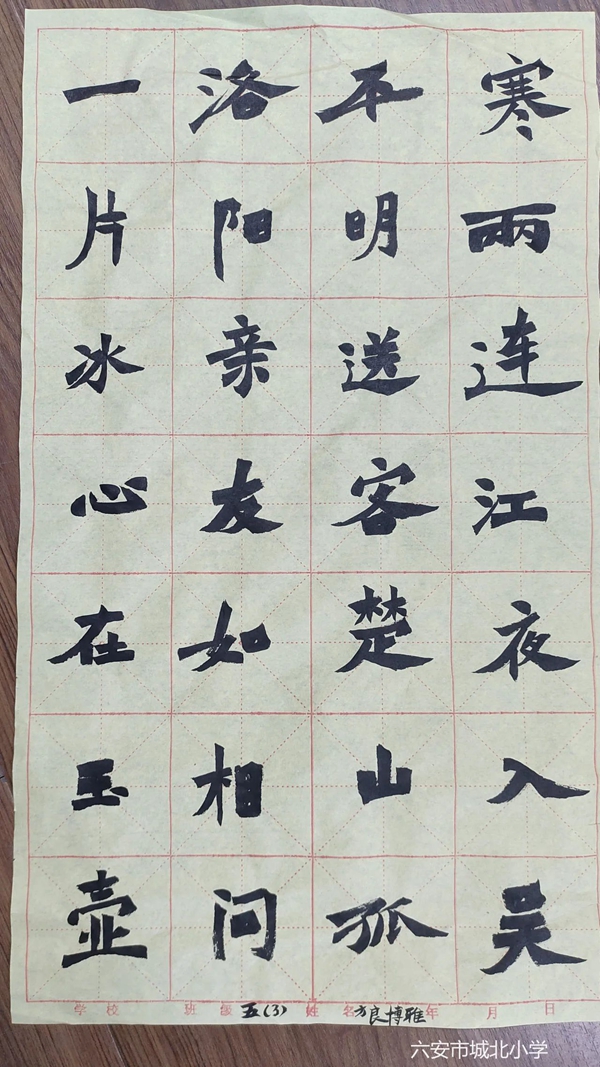 寒雨连江夜入吴
平明送客楚山孤
洛阳亲友如相问
一片冰心在玉壶
学校 班级五(3) 姓名方良博雅 年 月 日
六安市城北小学